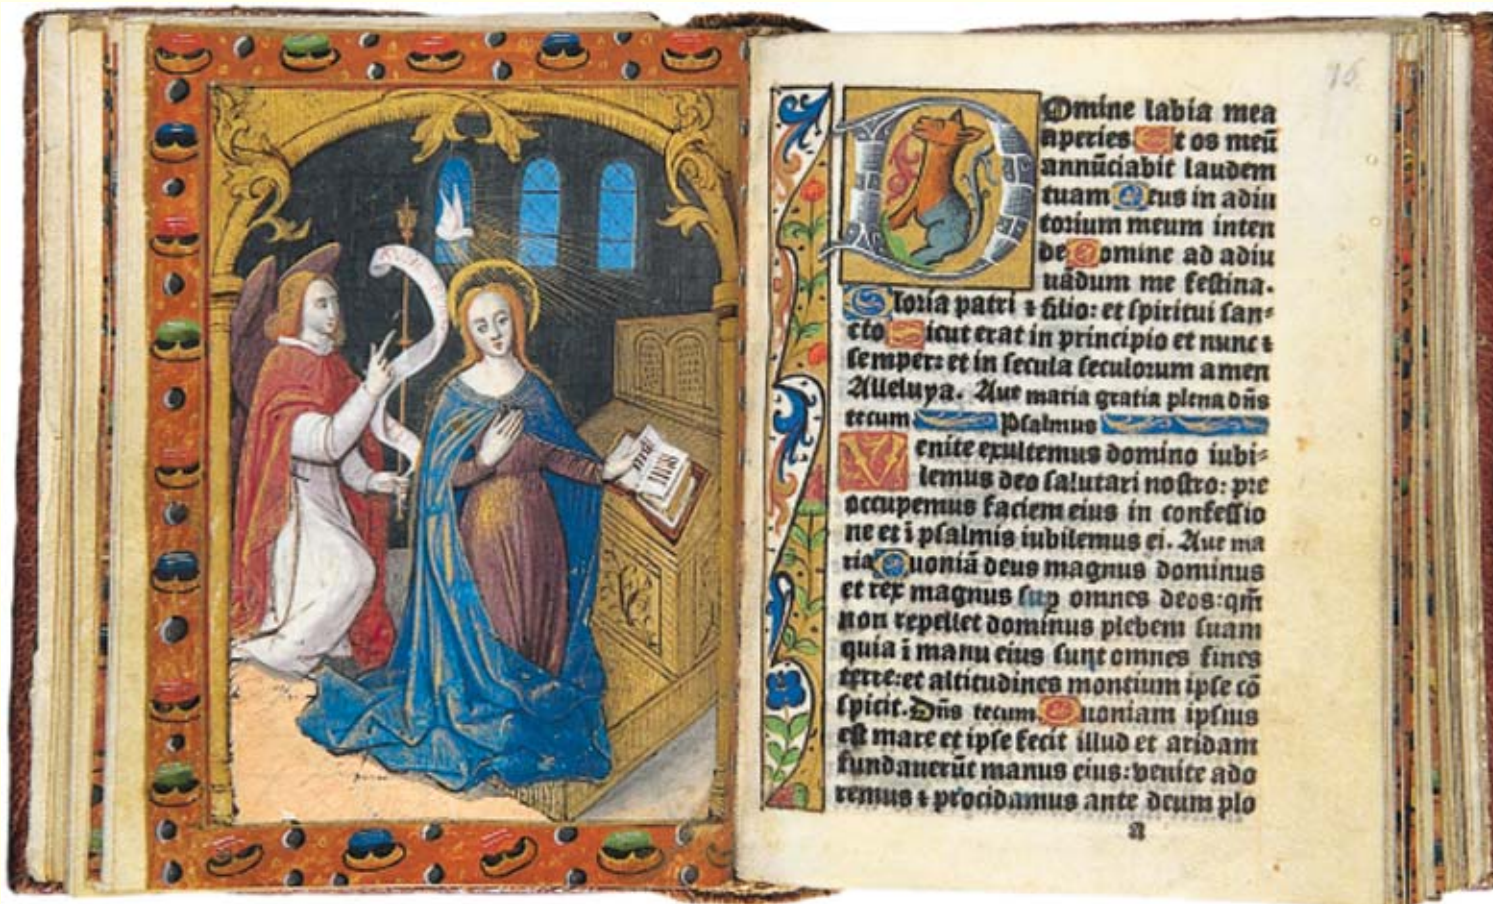 96
Domine labia mea
aperies Et os meū
annūciabit laudem
tuam Deus in adiu
torium meum inten
de Domine ad adiu
uādum me festina.
Gloria patri ⁊ filio: et spiritui san⸗
cto Sicut erat in principio et nunc ⁊
semper: et in secula seculorum amen
Alleluya. Aue maria gratia plena dn̄s
tecum Psalmus
Venite exultemus domino iubi⸗
lemus deo salutari nostro: pre
occupemus faciem eius in confessio
ne et ī psalmis iubilemus ei. Aue ma
ria Quoniā deus magnus dominus
et rex magnus sup omnes deos: qm̄
non repellet dominus plebem suam
quia ī manu eius sunt omnes fines
terre: et altitudines montium ipse cō
spicit. Dn̄s tecum Quoniam ipsius
est mare et ipse fecit illud et aridam
fundauerūt manus eius: venite ado
remus ⁊ procidamus ante deum plo
a